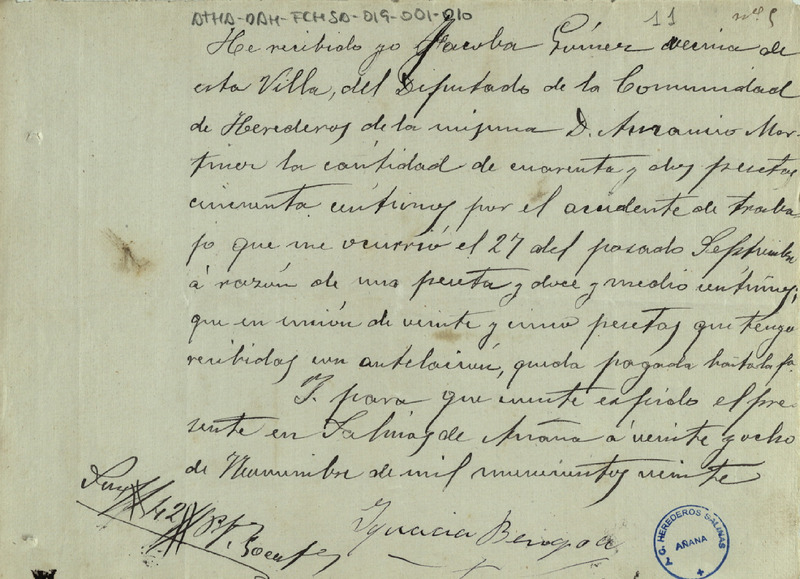 ATHA-DAH-FCHSD-019-001-010
11
nº 5
He recibido yo Jacoba Gómez vecina de
esta Villa, del Diputado de la Comunidad
de Herederos de la misma D. Mar-
tinez la cántidad de cuarenta y dos pesetas
cincuenta céntimos por el accidente de traba
jo que me ocurrió el 27 del pasado Septiembre
á razón de una peseta y doce y medio céntimos,
que en unión de veinte y cinco pesetas que tengo
recibidas con antelación, queda pagada hasta la
Y para que conste expido el pre-
sente en Salinas de Añana á veinte y ocho
de Noviembre de mil novecientos veinte
42
Ignacia
A. G. HEREDEROS SALINAS
AÑANA